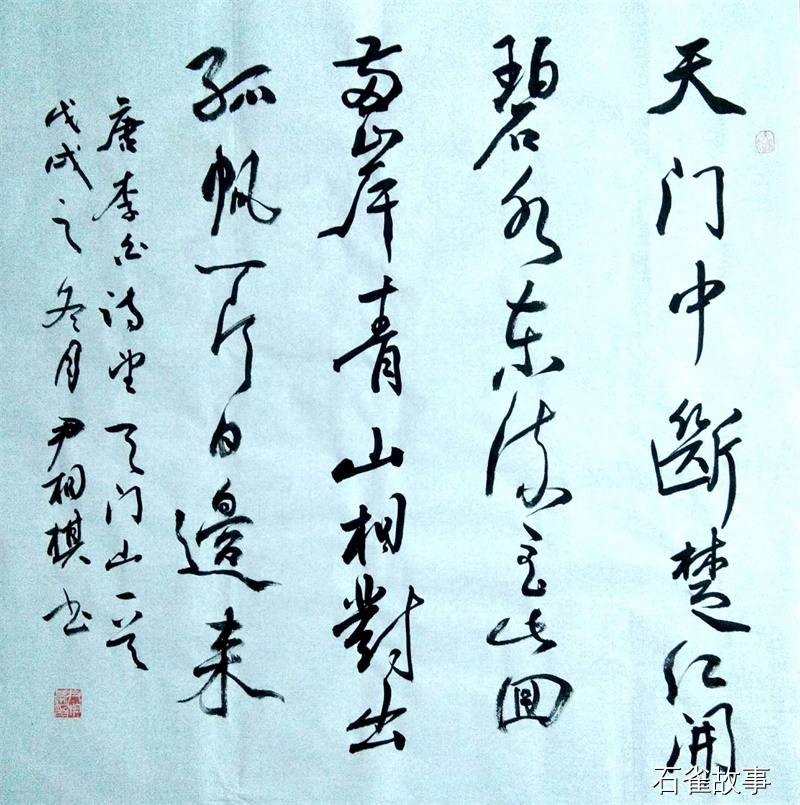 天门中斷楚江開
碧水东流至此回
两岸青山相對出
孤帆一片日邊来
唐李白诗望天门山一首
戊戌之冬月尹相棋书
石雀故事